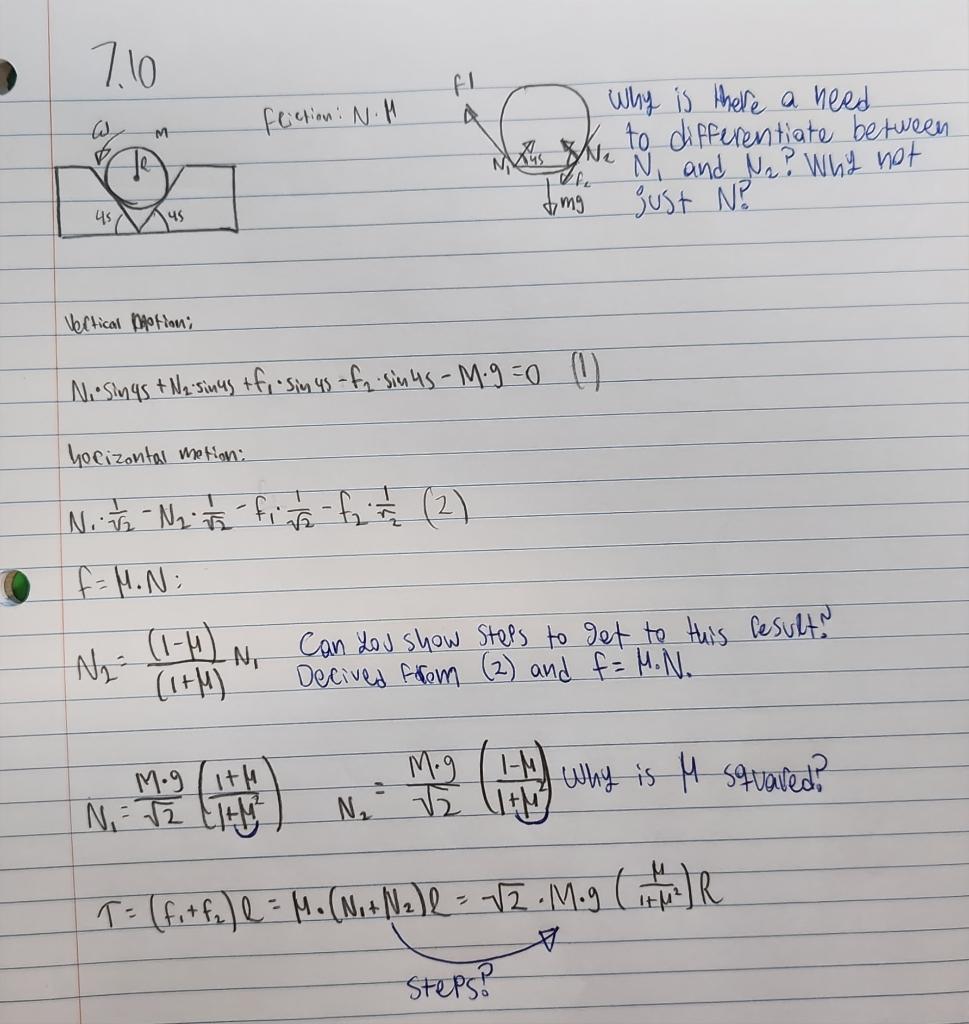 7.10
ω M
R
45 45
friction: N·μ
f1
N₁ 45 N₂
f₂
mg
Why is there a need
to differentiate between
N₁ and N₂? Why not
just N?
Vertical motion:
N₁·sin45 + N₂·sin45 + f₁·sin45 - f₂·sin45 - M·g = 0 (1)
horizontal motion:
N₁·1/√2 - N₂·1/√2 - f₁·1/√2 - f₂·1/√2 (2)
f = μ·N:
N₂ = (1-μ)/(1+μ) N₁ Can you show steps to get to this result?
Derived from (2) and f = μ.N.
N₁ = M·g/√2 (1+μ/1+μ²) N₂ = M·g/√2 (1-μ/1+μ²) Why is μ squared?
T = (f₁+f₂)R = μ·(N₁+N₂)R = √2·M·g (μ/1+μ²)R
steps?